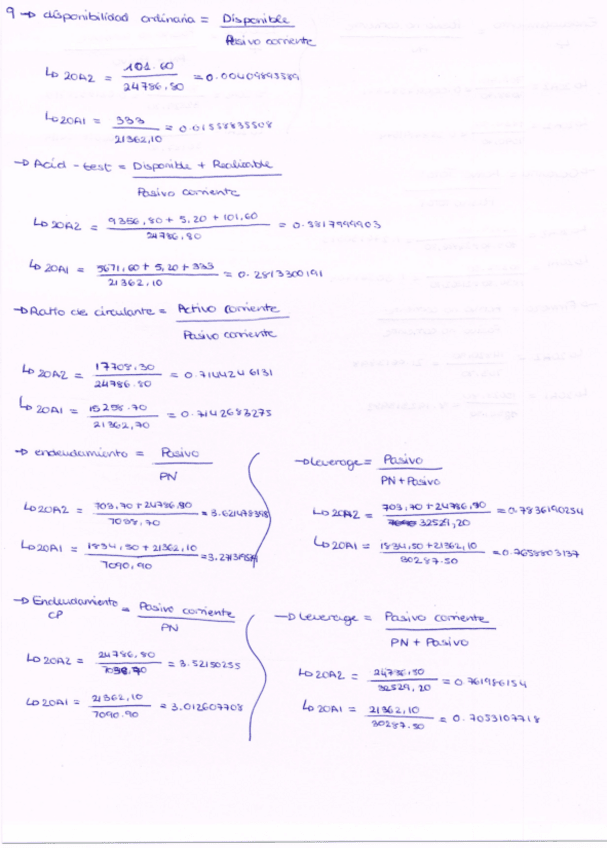 9 → disponibilidad ordinaria = Disponible / Pasivo corriente
↳ 20A2 = 101.60 / 24786,80 = 0.00409893589
↳ 20A1 = 333 / 21362,10 = 0.01558835508
→ Acid-test = Disponible + Realizable / Pasivo corriente
↳ 20A2 = 9356,80 + 5,20 + 101,60 / 24786,80 = 0.3817999903
↳ 20A1 = 5671,60 + 5,20 + 333 / 21362,10 = 0.2813300191
→ Ratio de circulante = Activo corriente / Pasivo corriente
↳ 20A2 = 17708.30 / 24786.80 = 0.7144246131
↳ 20A1 = 15258.70 / 21362,70 = 0.7142683275
→ endeudamiento = Pasivo / PN
↳ 20A2 = 703,70 + 24786,80 / 7038,70 =
↳ 20A1 = 1834,50 + 21362,10 / 7090,90 =
→ Leverage = Pasivo / PN + Pasivo
↳ 20A2 = 703,70 + 24786,80 / 32529,20 = 0.7836190254
↳ 20A1 = 1834,50 + 21362,10 / 30287.50 = 0.7658803137
→ Endeudamiento CP = Pasivo corriente / PN
↳ 20A2 = 24786,80 / 7038,70 = 3.52150255
↳ 20A1 = 21362,10 / 7090.90 = 3.012607708
→ Leverage = Pasivo corriente / PN + Pasivo
↳ 20A2 = 24786,80 / 32529,20 = 0.761986154
↳ 20A1 = 21362,10 / 30287.50 = 0.7053107718